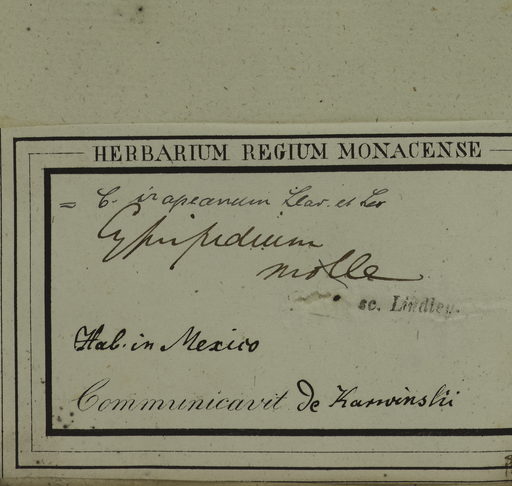 HERBARIUM REGIUM MONACENSE
= C. irapeanum Llav. et Lex
Cypripedium
molle
sc. Lindley.
Hab. in Mexico
Communicavit de Karwinskii